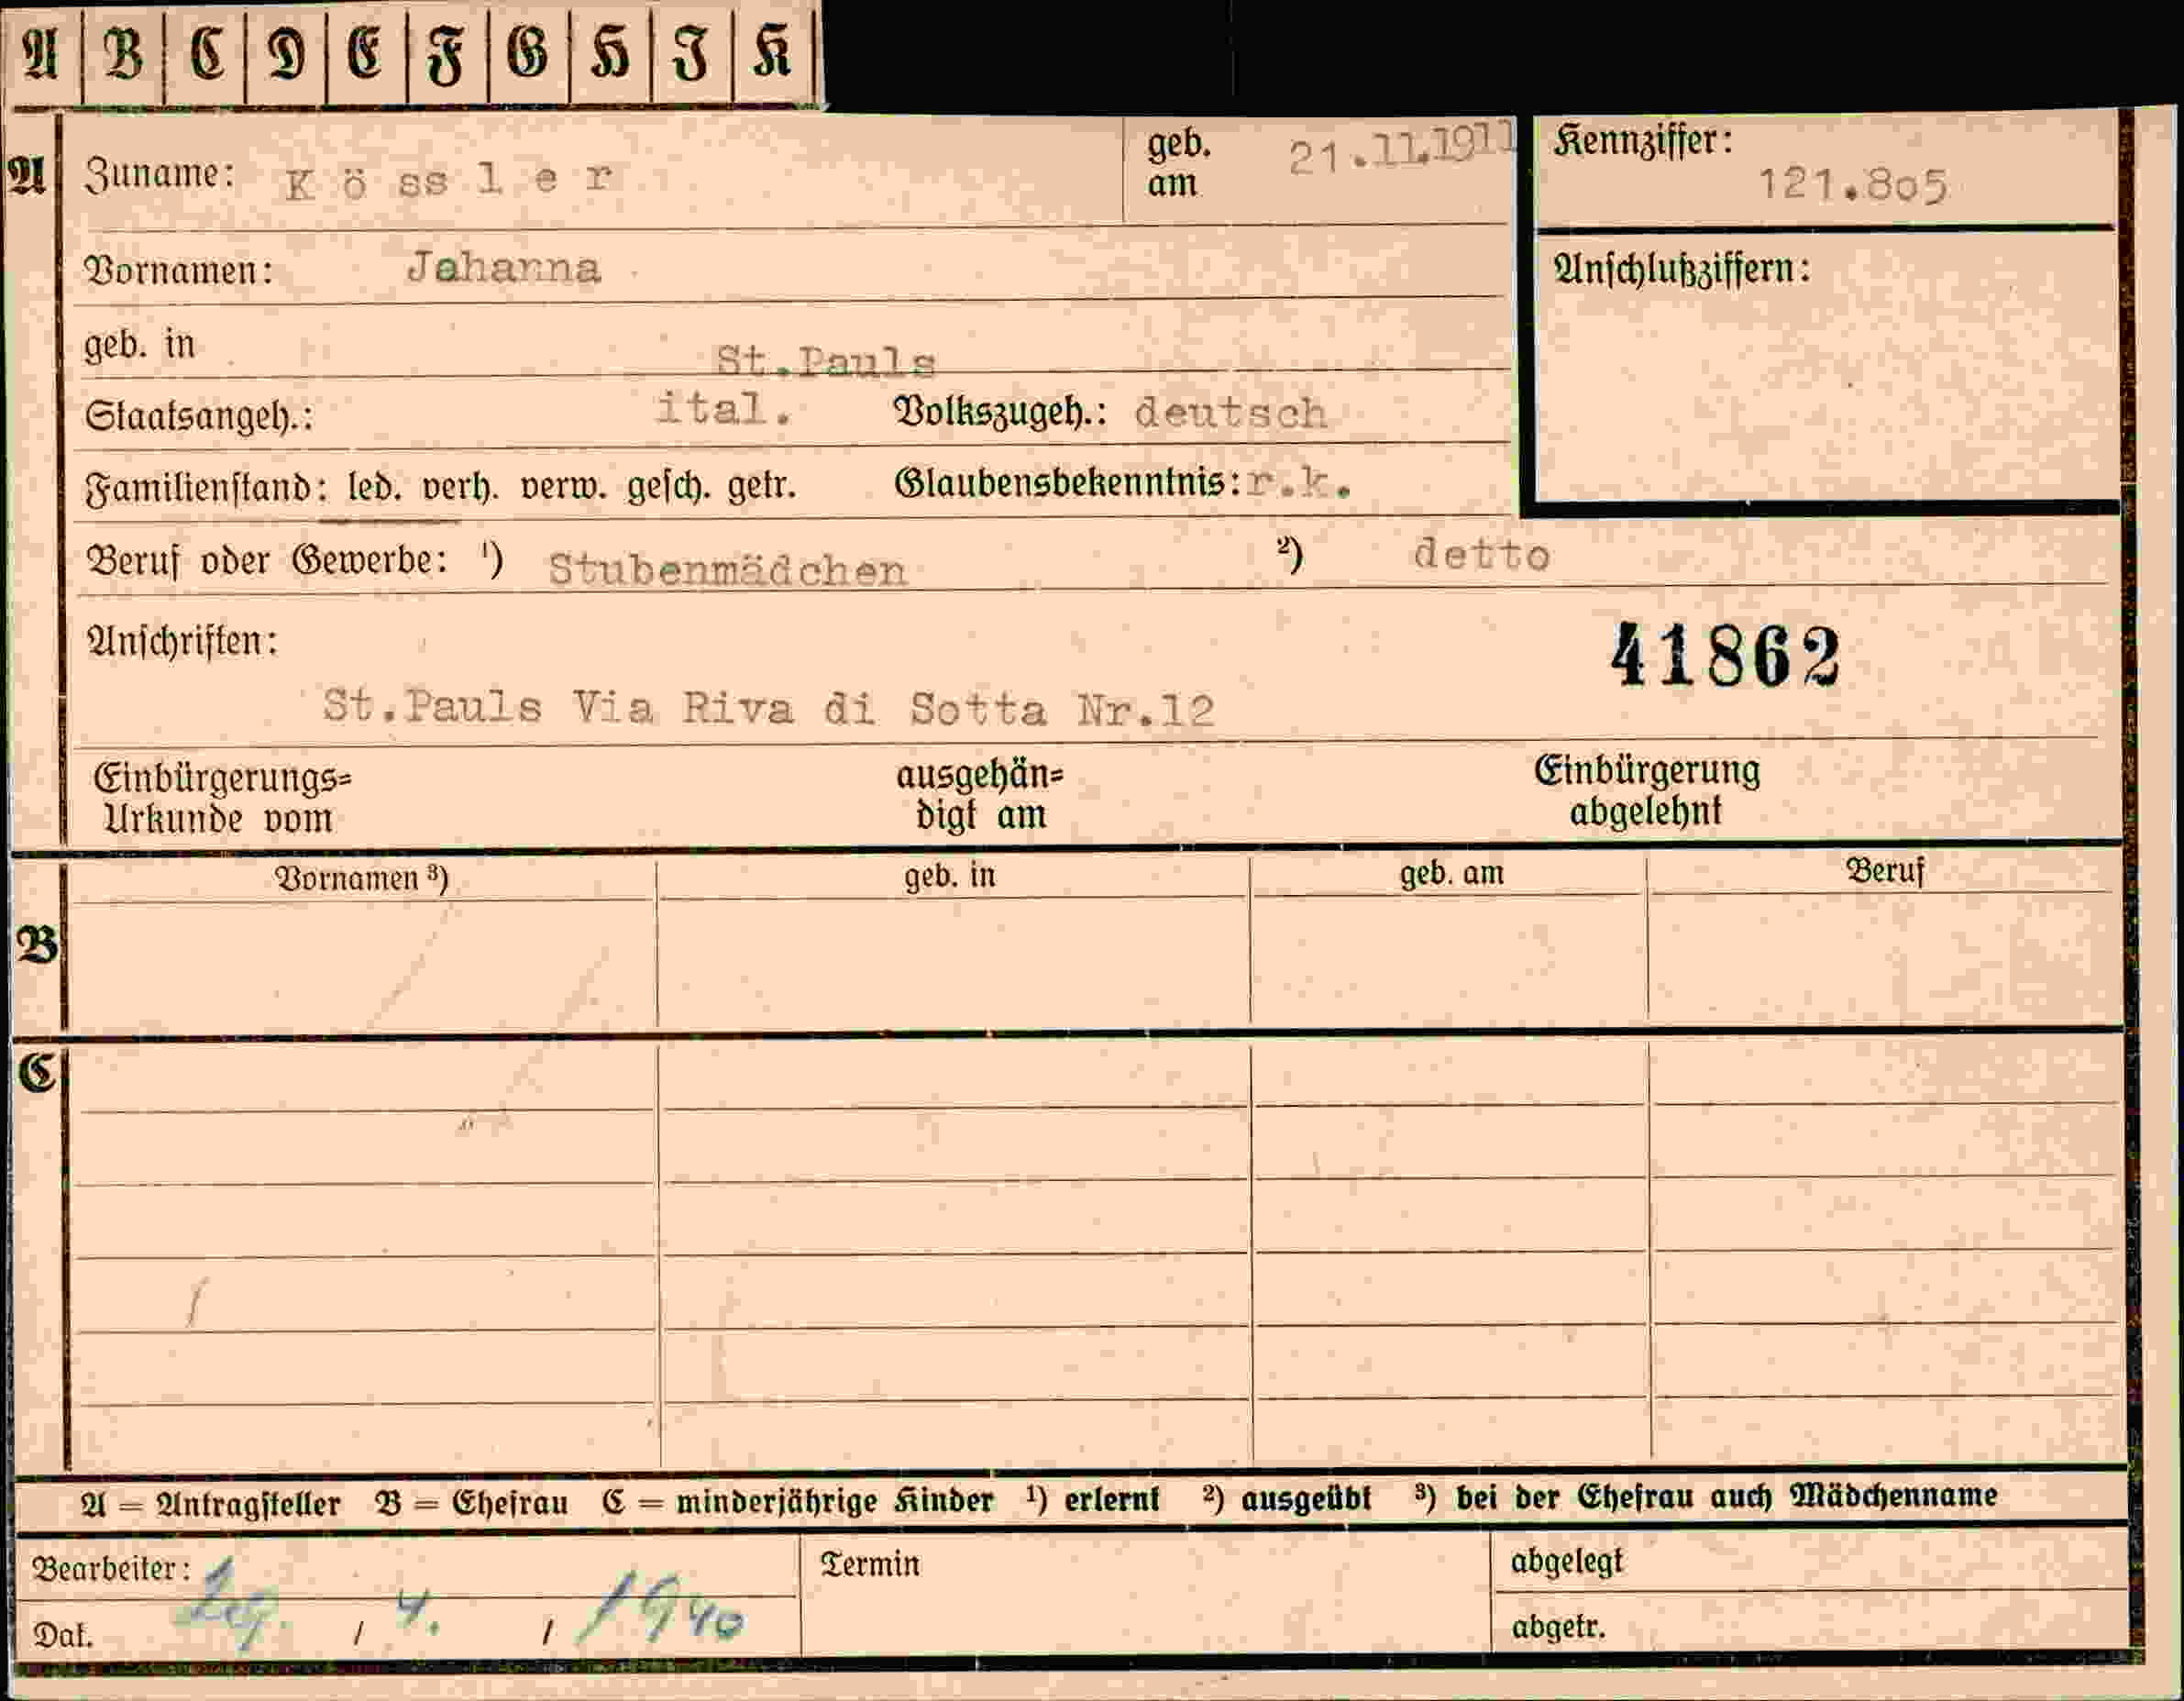 A B C D E F G H I K
A Zuname: K ö ss l e r geb. am 21.11.1911 Kennziffer: 121.8o5
Vornamen: Jahanna Anschlußziffern:
geb. in St.Pauls
Staatsangeh.: ital. Volkszugeh.: deutsch
Familienstand: led. verh. verw. gesch. getr. Glaubensbekenntnis: r.k.
Beruf oder Gewerbe: ¹) Stubenmädchen ²) detto
Anschriften: 41862
St.Pauls Via Riva di Sotta Nr.12
Einbürgerungs= ausgehän= Einbürgerung
Urkunde vom digt am abgelehnt
Vornamen ³) geb. in geb. am Beruf
B
C
A = Antragsteller B = Ehefrau C = minderjährige Kinder ¹) erlernt ²) ausgeübt ³) bei der Ehefrau auch Mädchenname
Bearbeiter: Termin abgelegt
Dat. / 4. / 1940 abgetr.